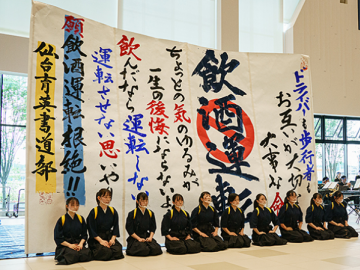 ドライバーも歩行者も
お互いが大切
大事な命
飲酒運転
ちょっとの気のゆるみが
一生の後悔にならないよう
飲んだなら運転しない
運転させない思いや
願飲酒運転根絶!!
仙台育英書道部